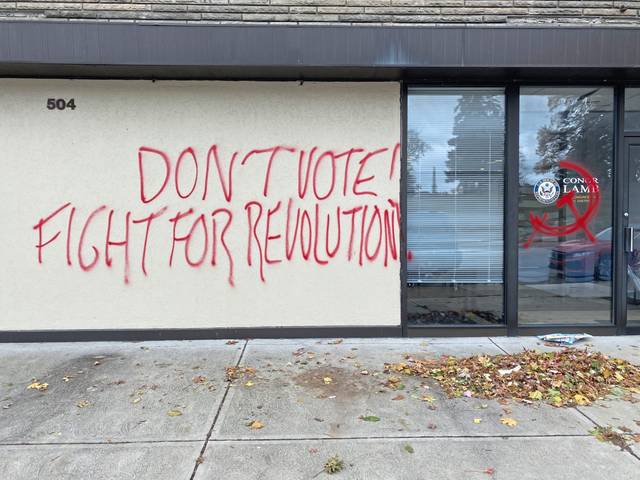 504
DON'T VOTE!
FIGHT FOR REVOLUTION!
CONOR
LAMB